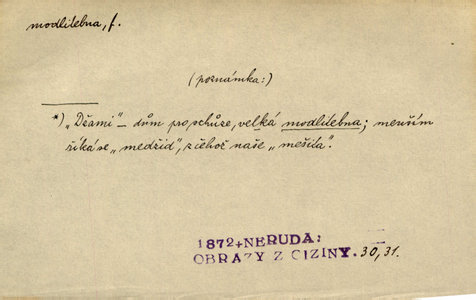 modlitebna, f.
(poznámka:)
*) „Džami" – dům pro schůze, velká modlitebna; menším
říká se „medžid", z čehož naše „mešita".
1872+NERUDA:
OBRAZY Z CIZINY. 30,31.